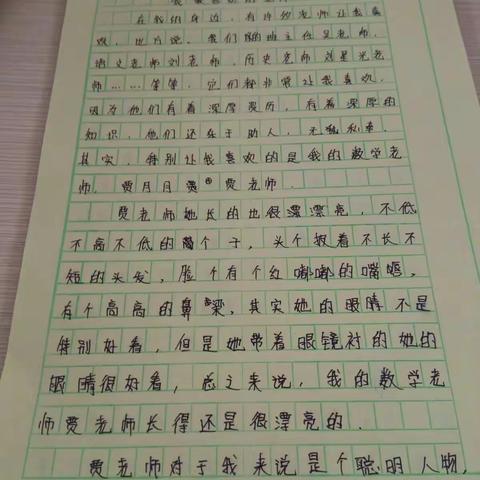 我最喜欢的老师
在我的身边,有许多老师让我喜
欢,也片说,我们的班主任吴老师,
语文老师刘老师,历史老师刘星光老
师……等等,它们都非常让我喜欢,
因为他们有着深厚资历,有着深厚的
知识,他们还乐于助人,无私私奉,
其实,特别让我喜欢的是我的数学老
师,贾月月贾老师.
贾老师她长的也很漂漂亮,不低
不高不低的个子,头个披着不长不
短的头发,脸个有个红嘟嘟的嘴唇,
有个高高的鼻梁,其实她的眼睛不是
特别好看,但是她带着眼镜衬的她的
眼睛很好看,总之来说,我的数学老
师贾老师长得还是很漂亮的.
贾老师对于我来说是个聪明人物,